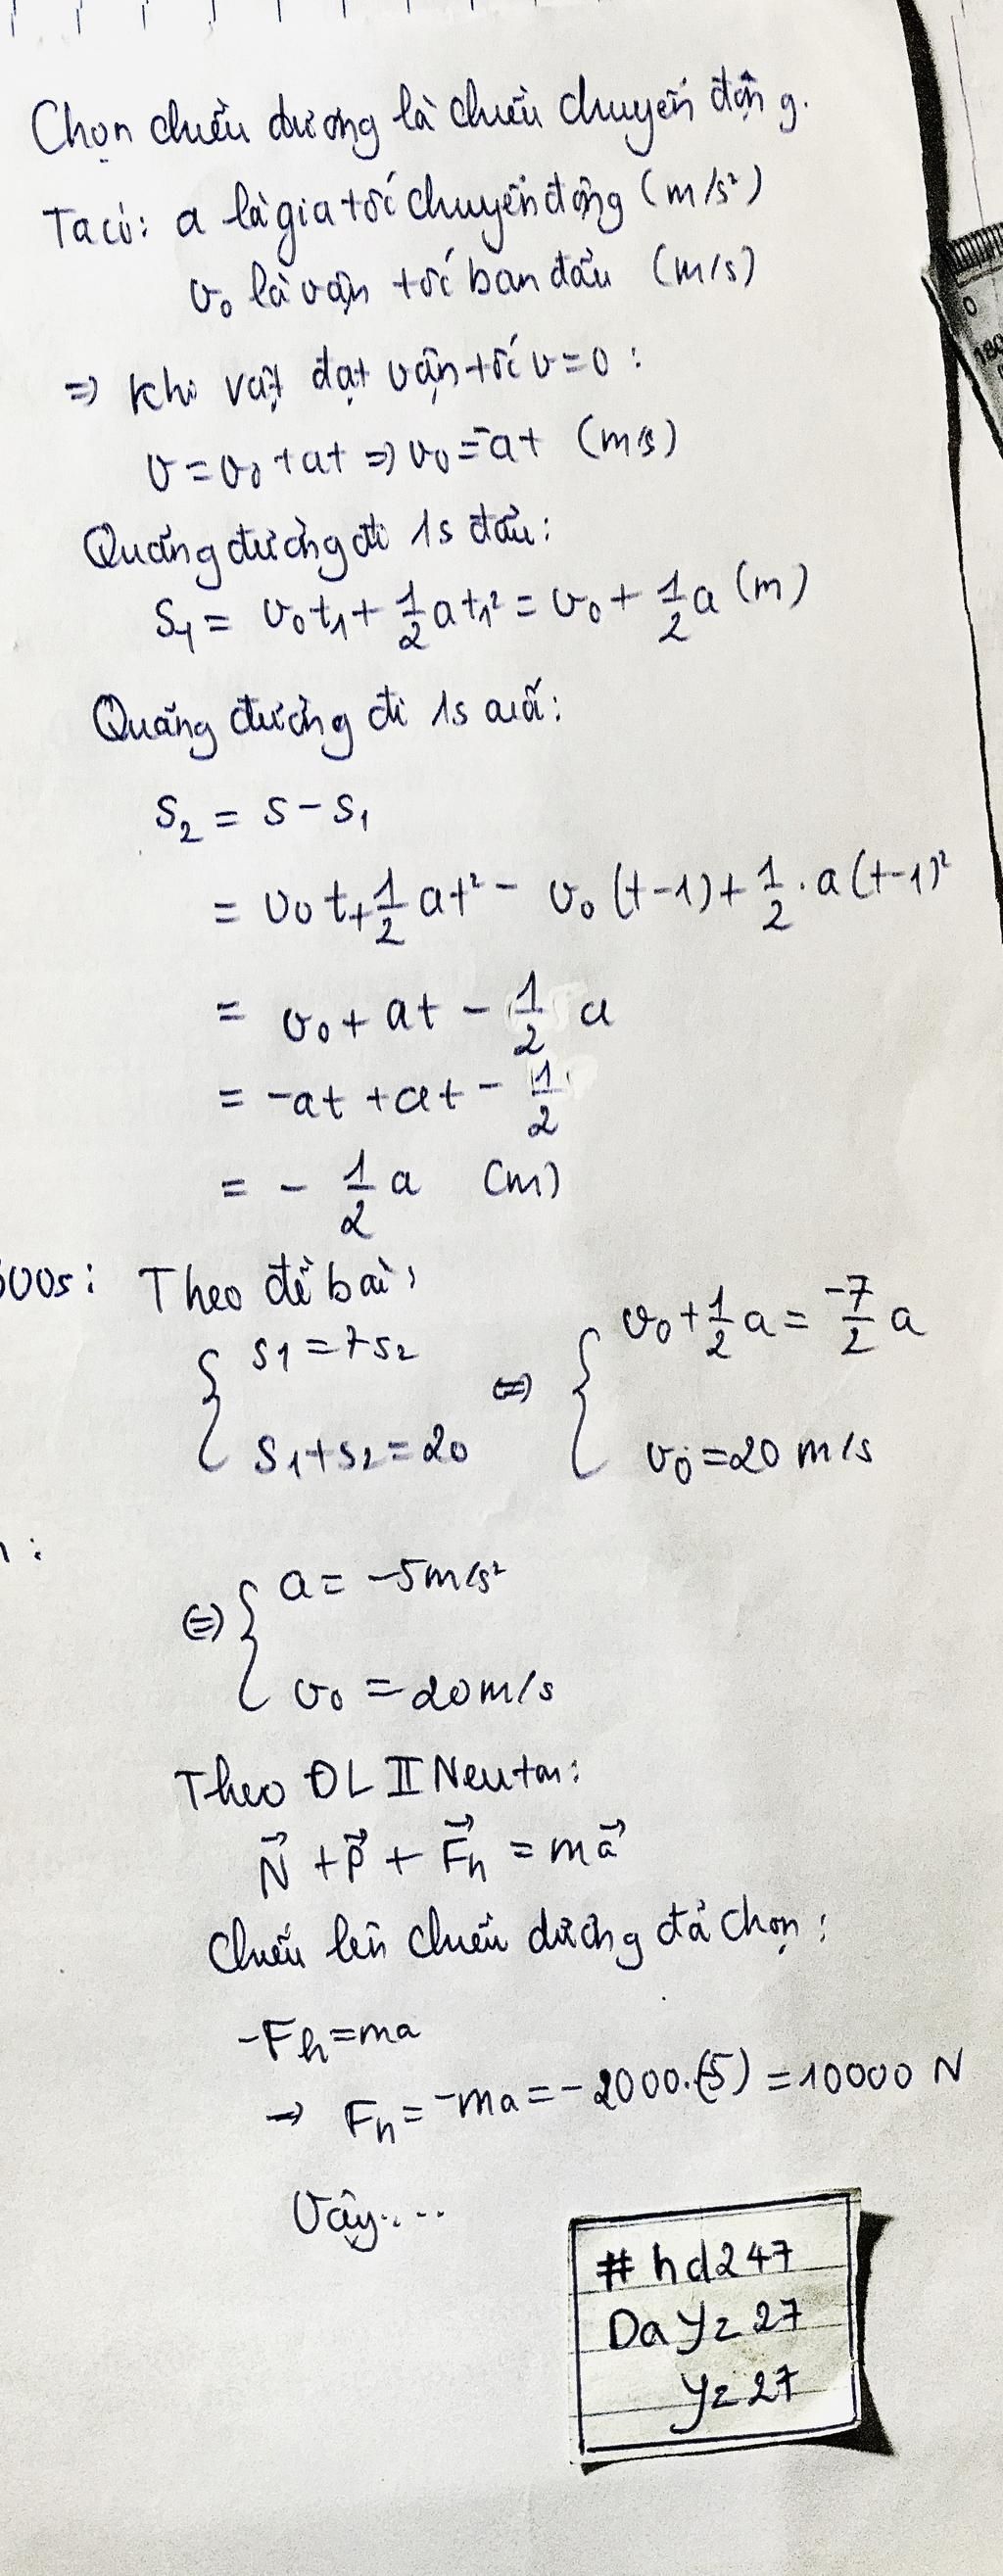 Chọn chiều dương là chiều chuyển động.
Ta có: a là gia tốc chuyển động (m/s²)
v₀ là vận tốc ban đầu (m/s)
=> Khi vật đạt vận tốc v=0:
v = v₀ + at => v₀ = -at (m/s)
Quãng đường đi 1s đầu:
S₁ = v₀t₁ + 1/2 at₁² = v₀ + 1/2 a (m)
Quãng đường đi 1s cuối:
S₂ = S - S₁
= v₀t + 1/2 at² - v₀(t-1) + 1/2 . a(t-1)²
= v₀ + at - 1/2 a
= -at + at - 1/2
= - 1/2 a (m)
00s: Theo đề bài:
{ S₁ = 7S₂ <=> { v₀ + 1/2 a = -7/2 a
S₁ + S₂ = 20 v₀ = 20 m/s
:
<=> { a = -5m/s²
v₀ = 20m/s
Theo ĐL II Neuton:
N⃗ + P⃗ + F⃗h = ma⃗
Chiếu lên chiều dương đã chọn:
-Fh = ma
→ Fh = -ma = -2000.(-5) = 10000 N
Vậy....
#hd247
Dayz27
yz27